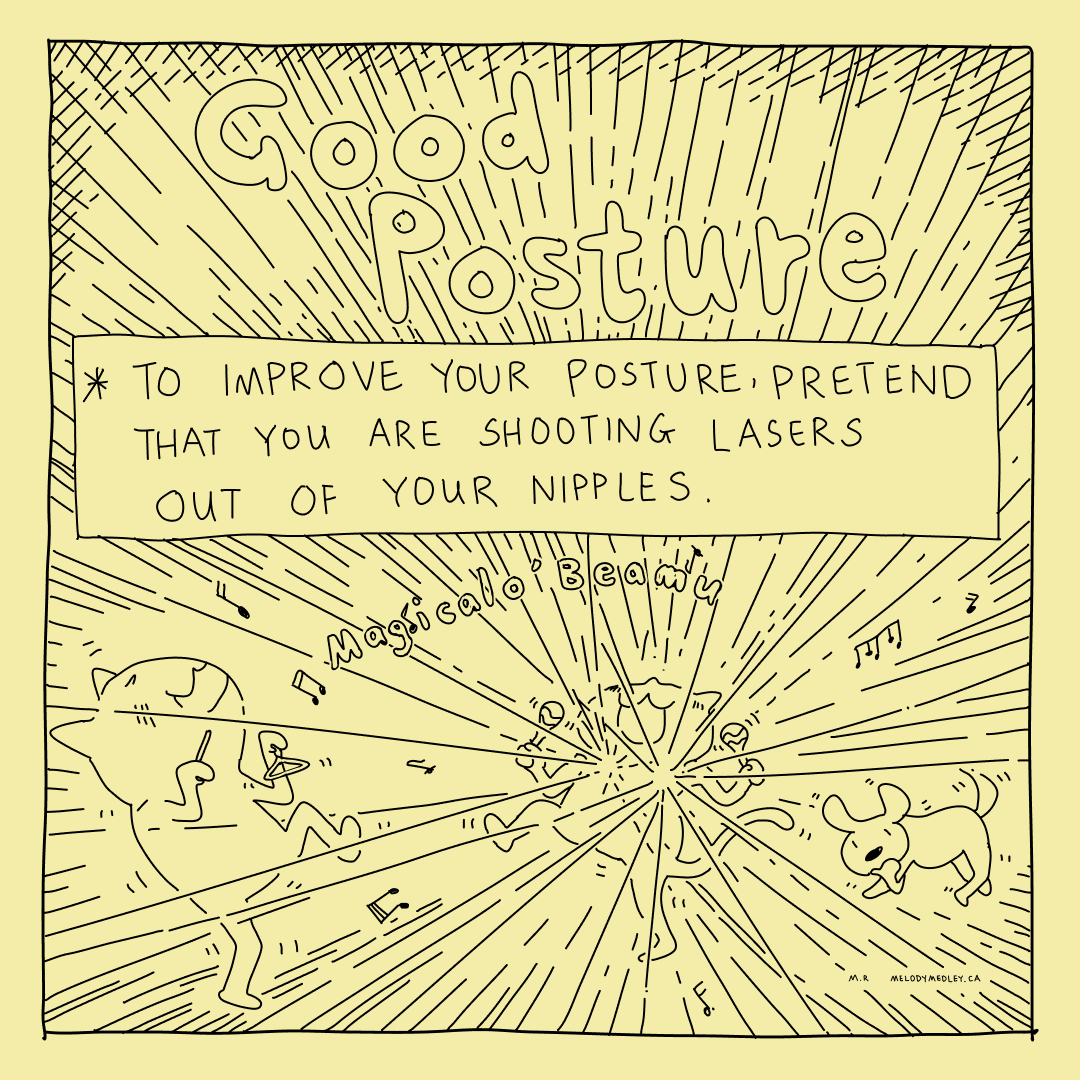 Good
Posture
* TO IMPROVE YOUR POSTURE, PRETEND
THAT YOU ARE SHOOTING LASERS
OUT OF YOUR NIPPLES.
Magicalo' Beam'u
M.R MELODYMEDLEY.CA